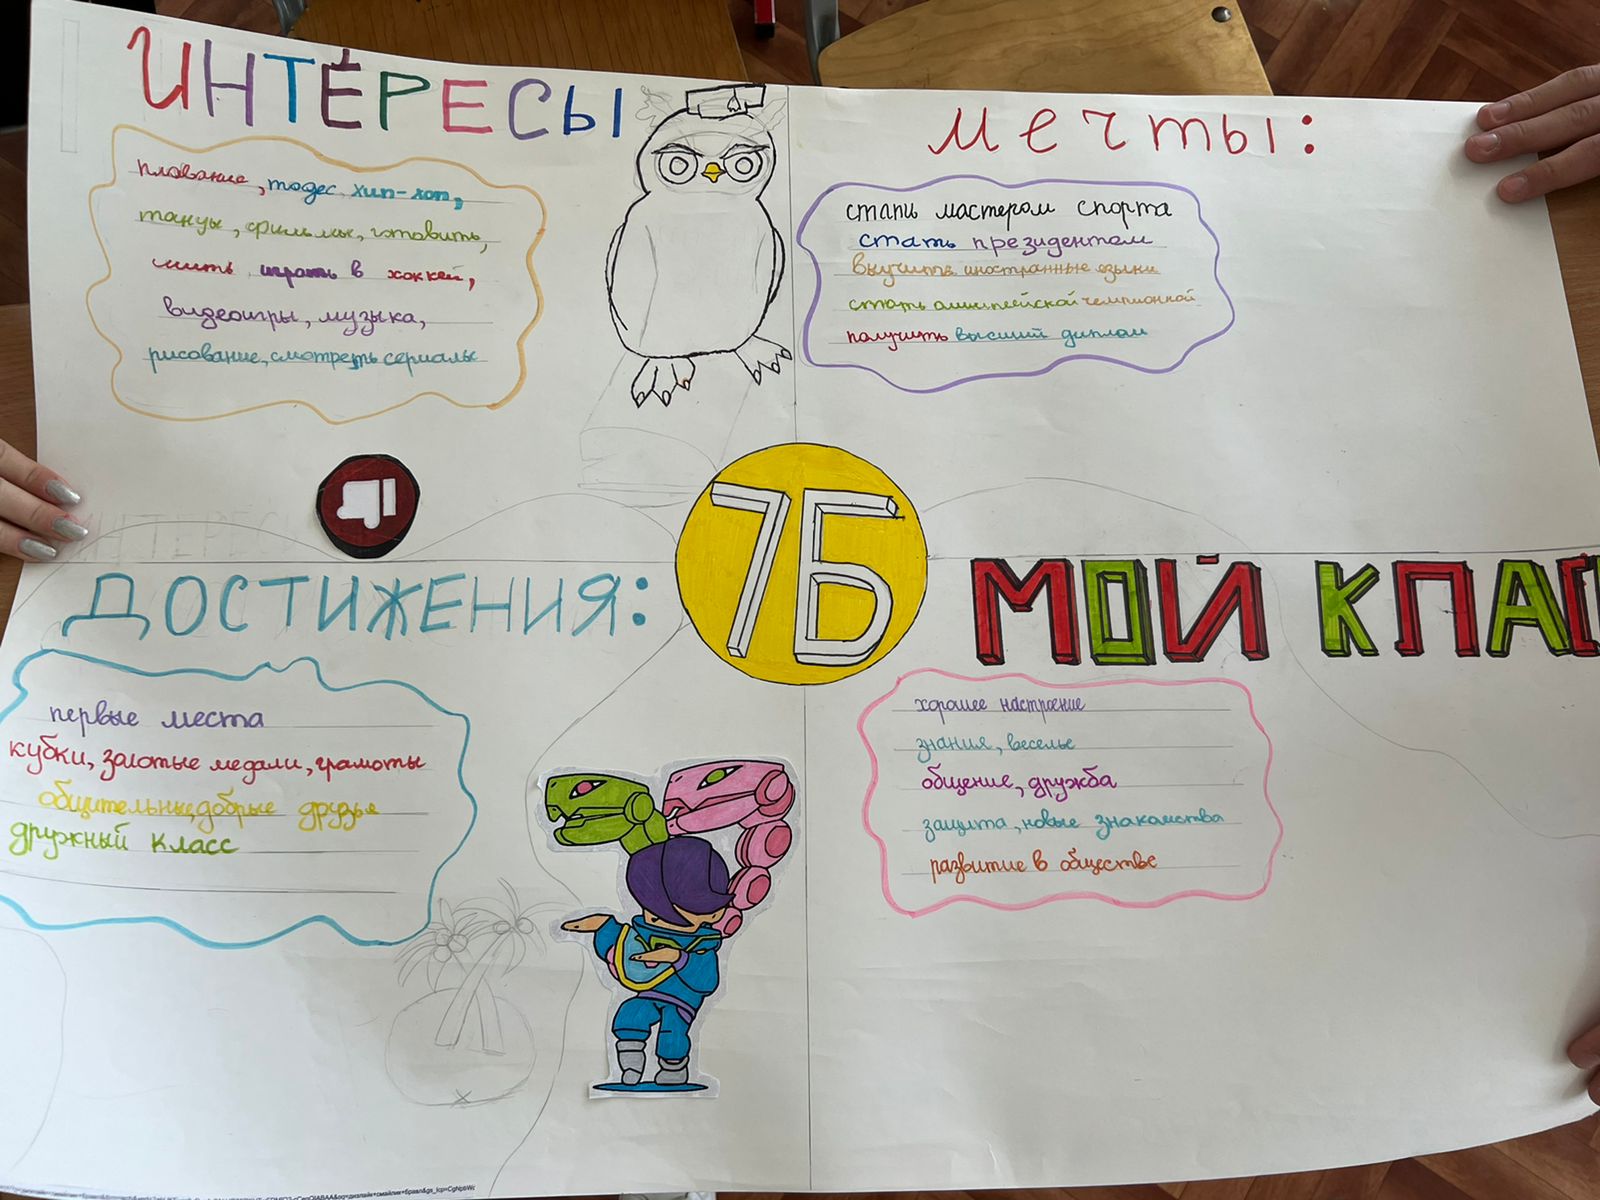 ИНТЕРЕСЫ
плавание, тодес хип-хоп,
танцы, фильмы, готовить,
шить играть в хоккей,
видеоигры, музыка,
рисование, смотреть сериалы
мечты:
стать мастером спорта
стать президентом
выучить иностранные языки
стать олимпейской чемпионкой
получить высший диплом
7Б
ИНТЕРЕС
ДОСТИЖЕНИЯ:
первые места
кубки, золотые медали, грамоты
общительные, добрые друзья
дружный класс
МОЙ КЛАСС
хорошее настроение
знания, веселье
общение, дружба
защита, новые знакомства
развитие в обществе